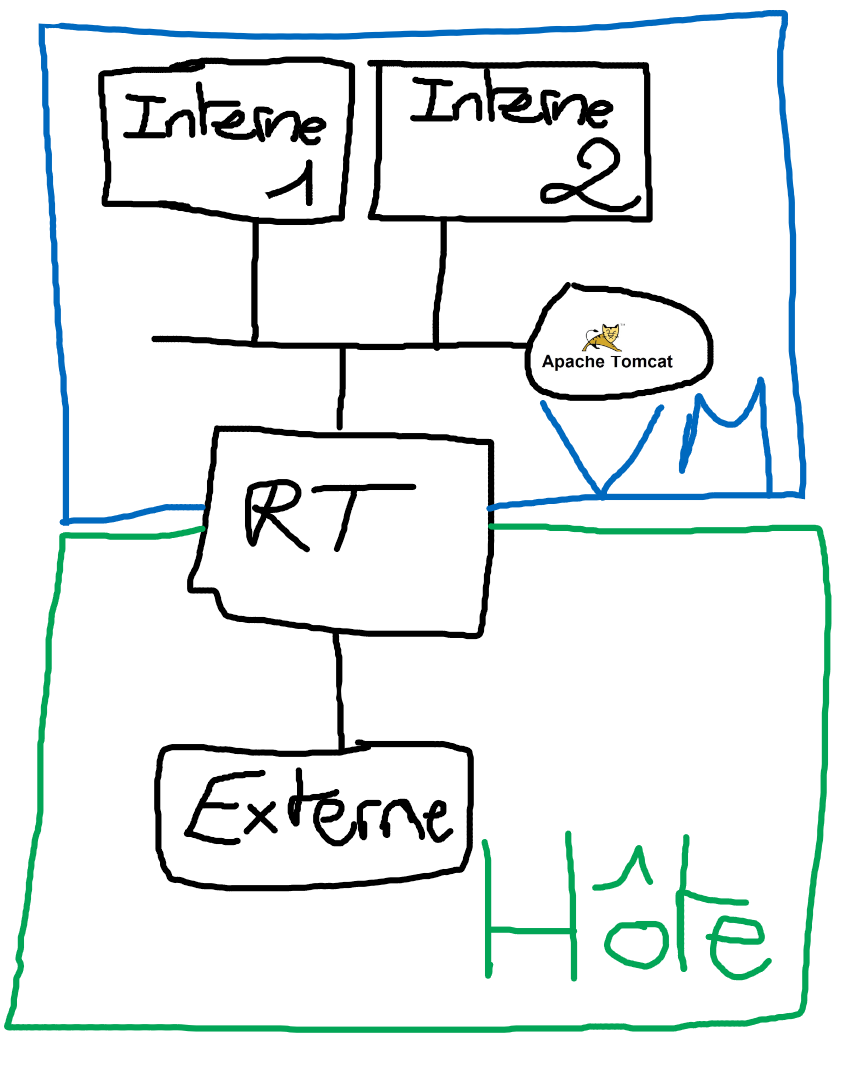 Interne
1
Interne
2
Apache Tomcat
VM
RT
Externe
Hôte